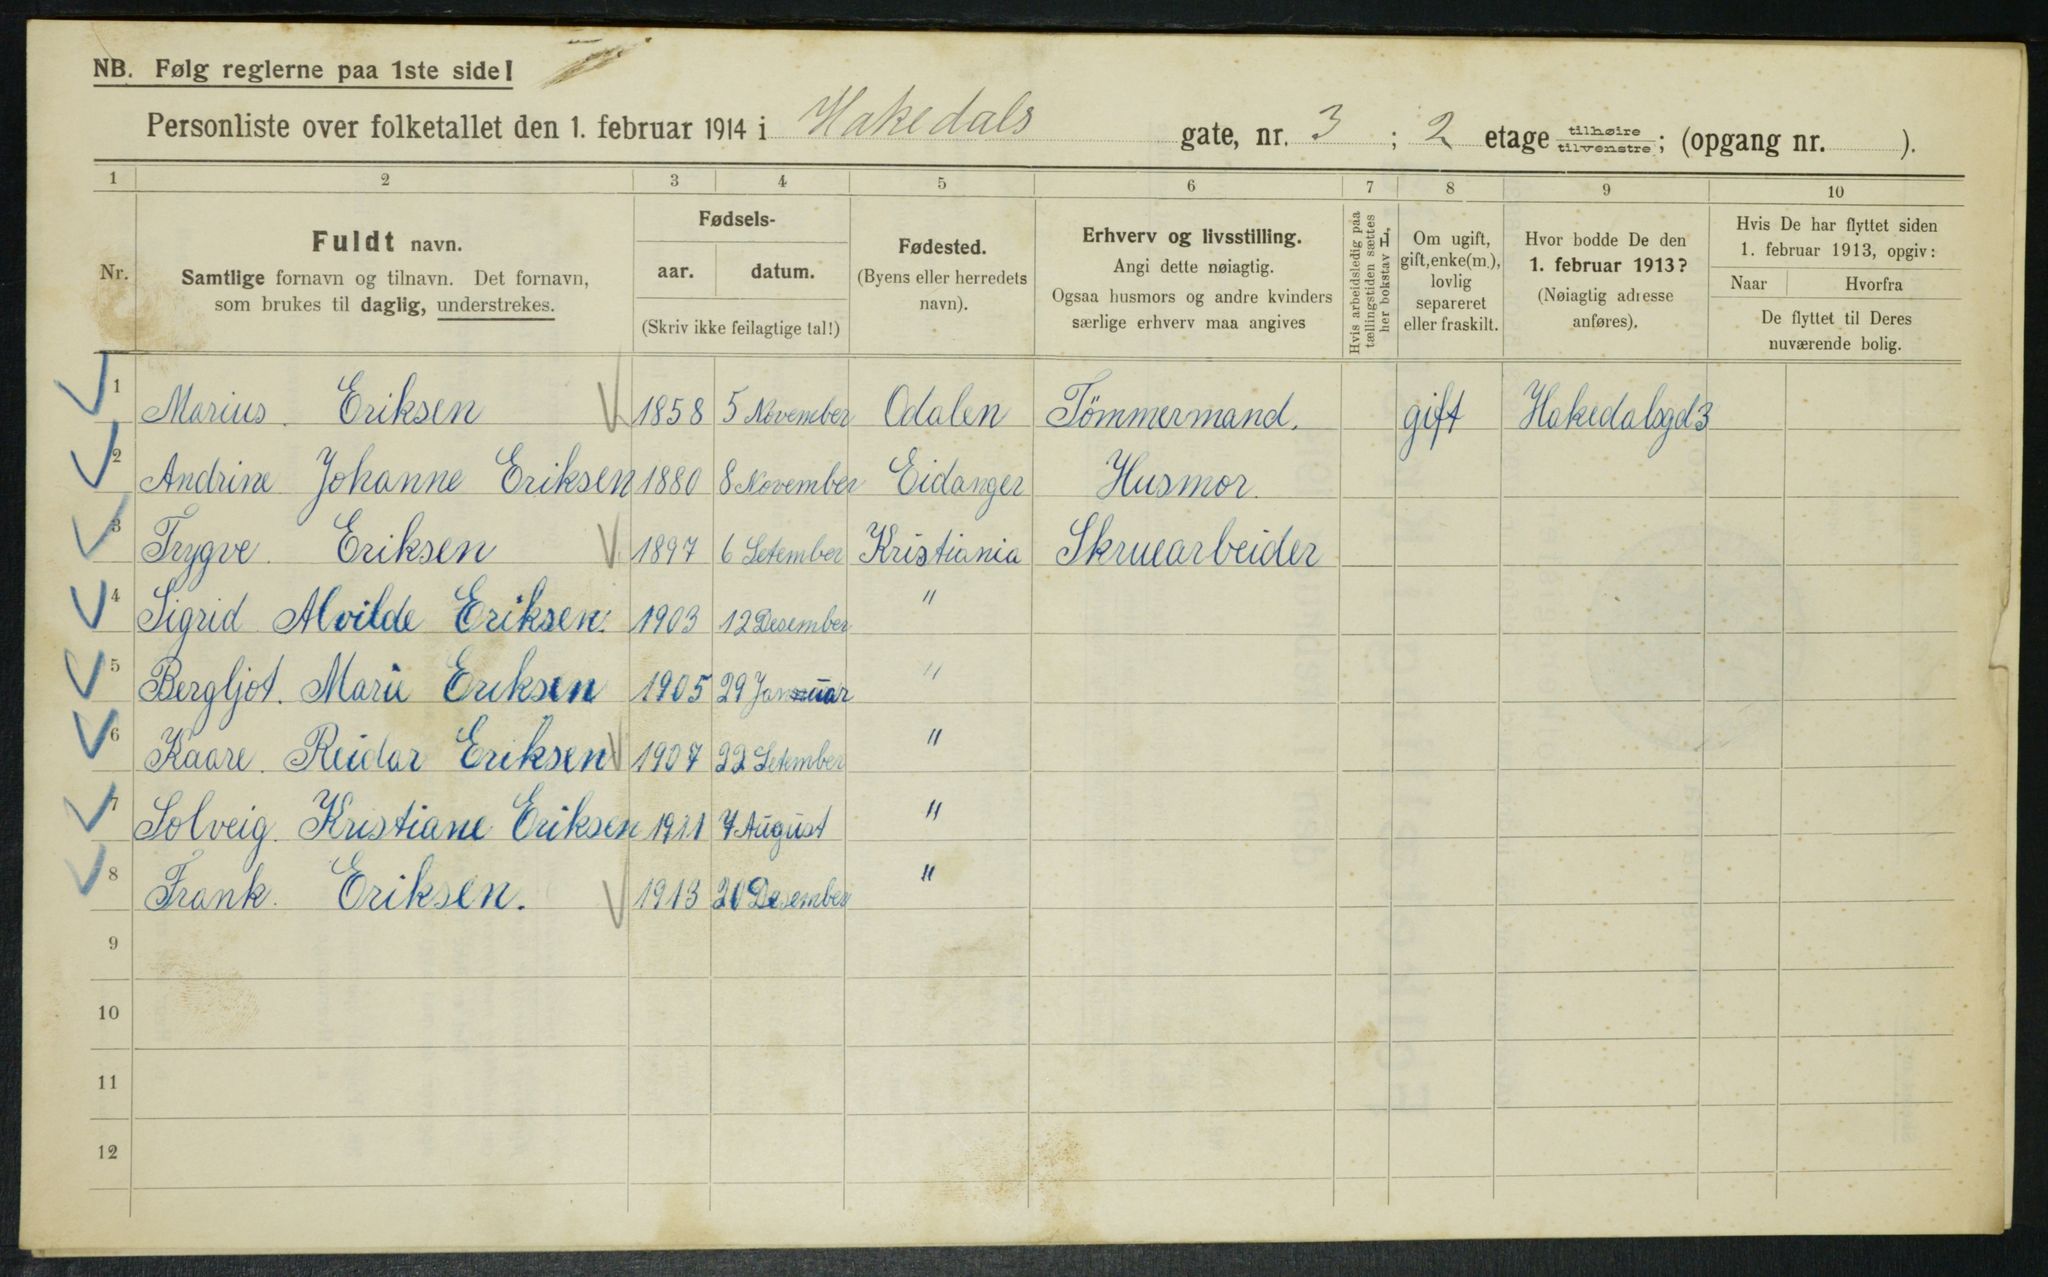 NB. Følg reglerne paa 1ste side!
Personliste over folketallet den 1. februar 1914 i Hakedals gate, nr. 3 ; 2 etage tilhøire tilvenstre ; (opgang nr. ).
1 2 3 4 5 6 7 8 9 10
Nr.
Fuldt navn.
Samtlige fornavn og tilnavn. Det fornavn,
som brukes til daglig, understrekes.
Fødsels-
aar. datum.
(Skriv ikke feilagtige tal!)
Fødested.
(Byens eller herredets
navn).
Erhverv og livsstilling.
Angi dette nøiagtig.
Ogsaa husmors og andre kvinders
særlige erhverv maa angives
Hvis arbeidsledig paa
tællingstiden sættes
her bokstav L.
Om ugift,
gift, enke(m.),
lovlig
separeret
eller fraskilt.
Hvor bodde De den
1. februar 1913?
(Nøiagtig adresse
anføres).
Hvis De har flyttet siden
1. februar 1913, opgiv:
Naar Hvorfra
De flyttet til Deres
nuværende bolig.
1 Marius. Eriksen 1858 5 November Odalen Tömmermand. gift Hakedalsgd 3
2 Andrine Johanne Eriksen 1880 8 November Eidanger Husmor.
3 Trygve. Eriksen 1897 6 Setember Kristiania Skruearbeider
4 Sigrid Alvilde Eriksen. 1903 12 Desember "
5 Bergljot. Marie Eriksen 1905 29 Januar "
6 Kaare. Reidar Eriksen 1907 22 Setember "
7 Solveig. Kristiane Eriksen 1911 7 August "
8 Frank. Eriksen. 1913 20 Desember "
9
10
11
12